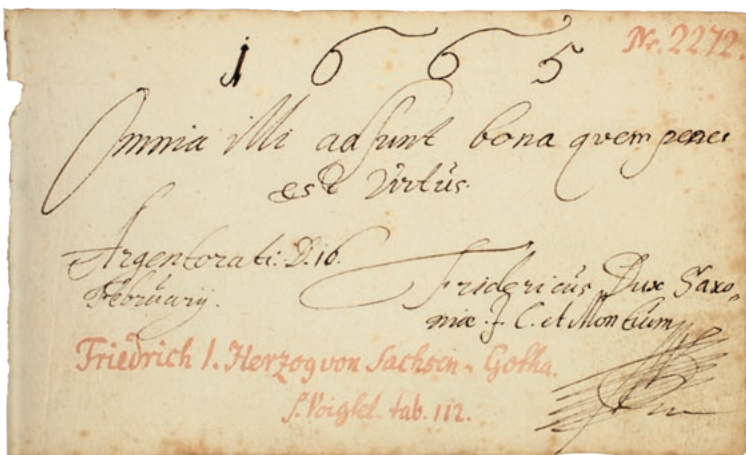 Nr. 2272.
1665
Omnia illi adsunt bona quem penes
est Virtus.
Argentorati. D. 16.
Februarij.
Fridericus Dux Saxo„
niæ. J. C. et Montium
Friedrich I. Herzog von Sachsen-Gotha.
s. Voigtel. tab. 112.